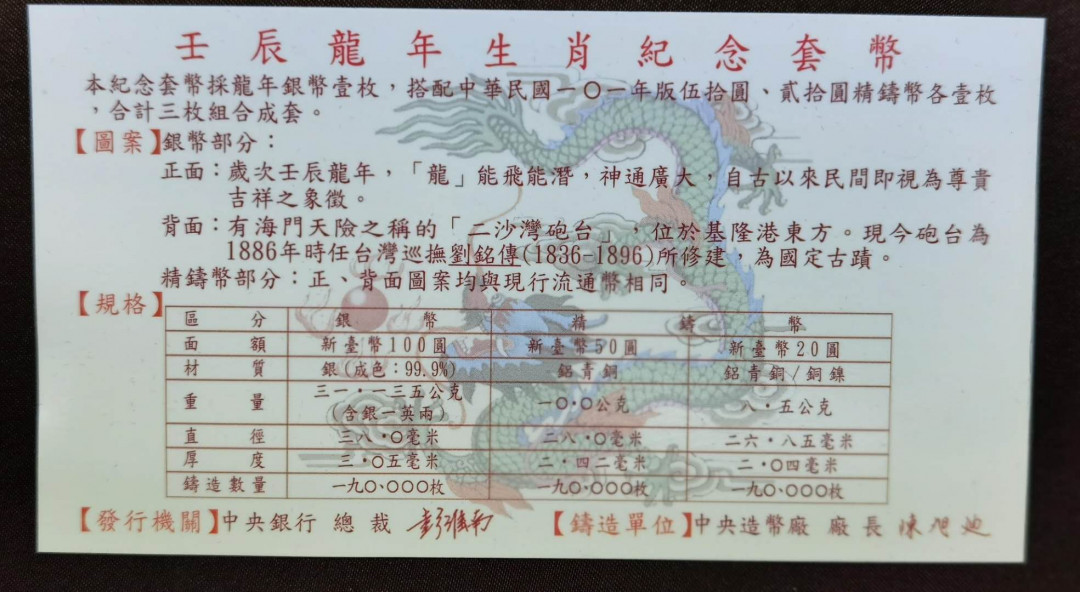 壬辰龍年生肖紀念套幣
本紀念套幣採龍年銀幣壹枚，搭配中華民國一〇一年版伍拾圓、貳拾圓精鑄幣各壹枚
，合計三枚組合成套。
【圖案】銀幣部分：
正面：歲次壬辰龍年，「龍」能飛能潛，神通廣大，自古以來民間即視為尊貴
吉祥之象徵。
背面：有海門天險之稱的「二沙灣砲台」，位於基隆港東方。現今砲台為
1886年時任台灣巡撫劉銘傳(1836-1896)所修建，為國定古蹟。
精鑄幣部分：正、背面圖案均與現行流通幣相同。
【規格】
區分 銀幣 精鑄幣
面額 新臺幣100圓 新臺幣50圓 新臺幣20圓
材質 銀(成色：99.9%) 鋁青銅 鋁青銅/銅鎳
重量 三一・一三五公克 一〇・〇公克 八・五公克
(含銀一英兩)
直徑 三八・〇毫米 二八・〇毫米 二六・八五毫米
厚度 三・〇五毫米 二・四二毫米 二・〇四毫米
鑄造數量 一九〇、〇〇〇枚 一九〇、〇〇〇枚 一九〇、〇〇〇枚
【發行機關】中央銀行 總裁 彭淮南 【鑄造單位】中央造幣廠 廠長